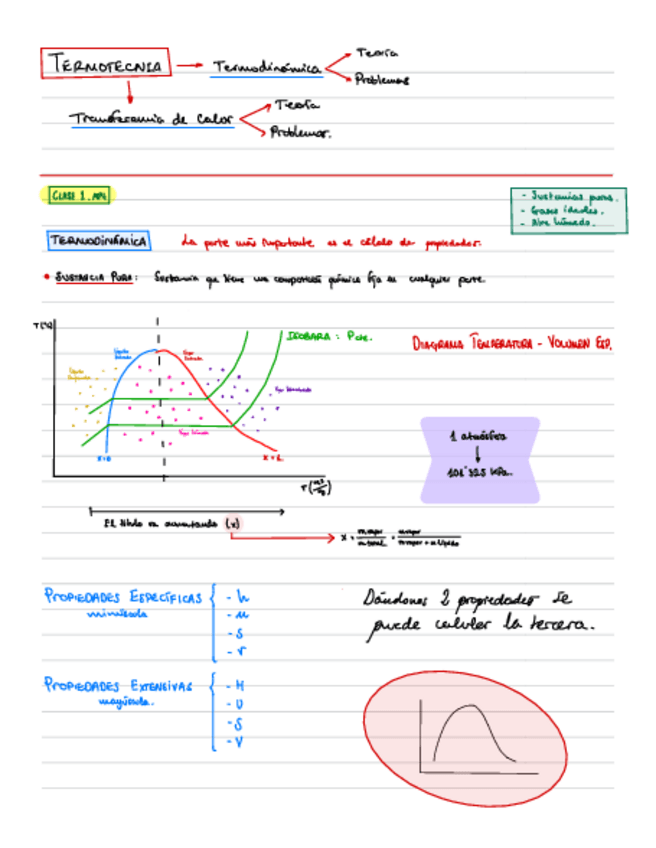 TERMOTECNIA
Termodinámica
Teoría
Problemas
Transferencia de Calor
Teoría
Problemas.
CLASE 1.MP4
- Sustancias puras.
- Gases ideales.
- Aire húmedo.
TERMODINÁMICA
La parte más importante es el cálculo de propiedades.
• SUSTANCIA PURA: Sustancia que tiene una composición química fija en cualquier parte.
ISOBARA: P cte.
DIAGRAMA TEMPERATURA - VOLUMEN ESP.
Vapor húmedo
x=0
1 atmósfera
101'325 kPa.
El título va aumentando (x)
PROPIEDADES ESPECÍFICAS
minúscula
- h
- u
- s
- v
Dándonos 2 propiedades se
puede calcular la tercera.
PROPIEDADES EXTENSIVAS
mayúscula.
- H
- U
- S
- V